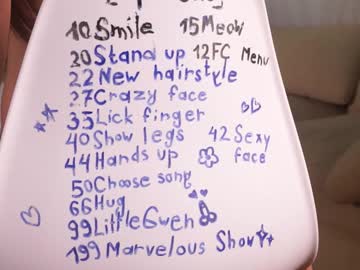 10 Smile 15 Meow
20 Stand up 12 FC Menu
22 New hairstyle
27 Crazy face
35 Lick finger
40 Show legs 42 Sexy face
44 Hands up
50 Choose song
66 Hug
99 LittleGwen
199 Marvelous Show